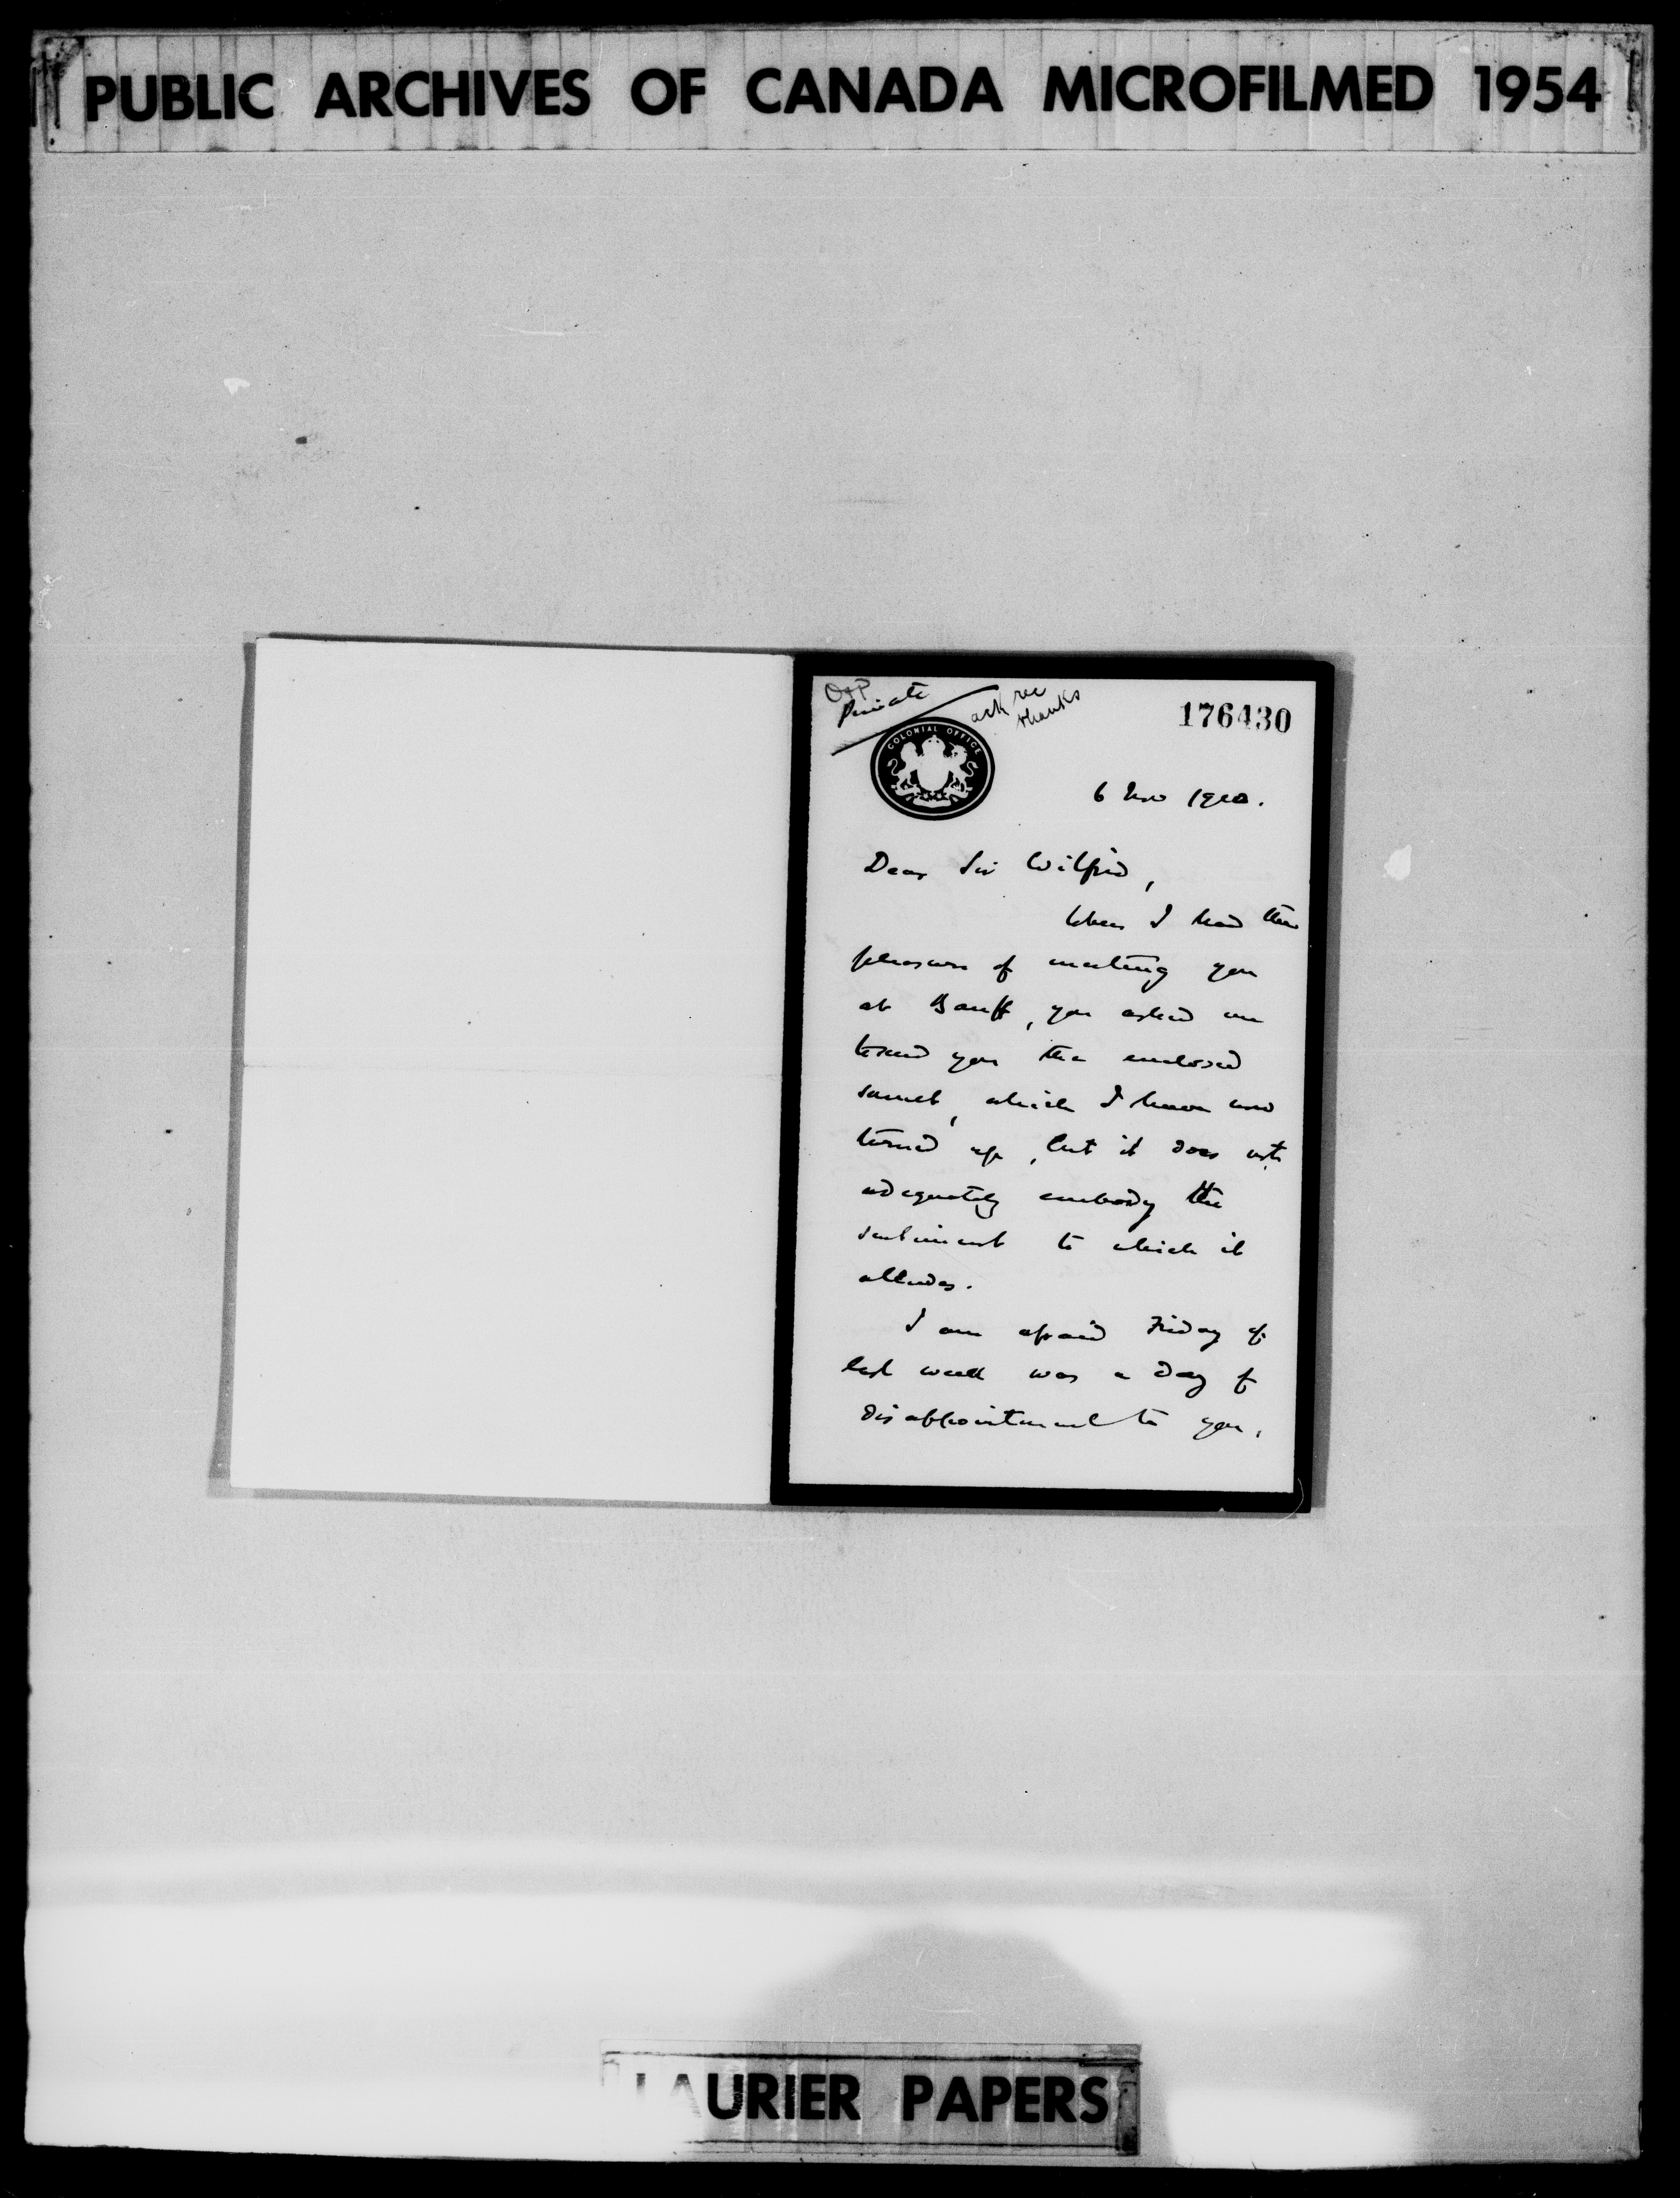 PUBLIC ARCHIVES OF CANADA MICROFILMED 1954
Private
ack rec
thanks
176430
COLONIAL OFFICE
6 Nov 1910.
Dear Sir Wilfrid,
When I had the
pleasure of meeting you
at Banff, you asked me
to send you the enclosed
sonnet, which I have now
turned up, but it does not
adequately embody the
sentiment to which it
alludes.
I am afraid Friday of
last week was a day of
disappointment to you,
LAURIER PAPERS